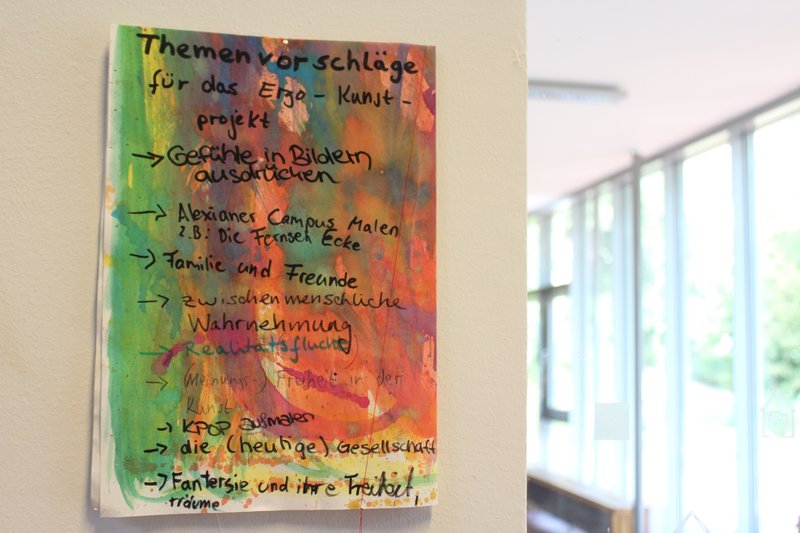 Themenvorschläge
für das Ergo-Kunst-
projekt
→ Gefühle in Bildern
ausdrücken
→ Alexianer Campus Malen
z.B: Die Fernseh Ecke
→ Familie und Freunde
→ zwischenmenschliche
Wahrnehmung
→ Realitätsflucht
→ (Meinungs-) Freiheit in der
Kunst
→ KPOP aufmalen
→ die (heutige) Gesellschaft
→ Fantersie und ihre Freiheit,
träume